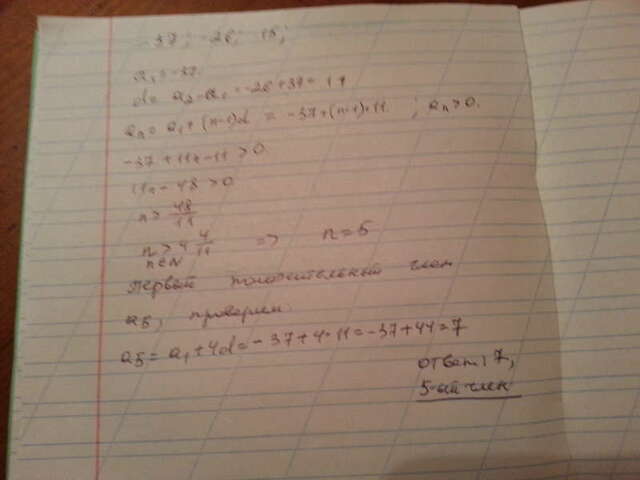 -37; -26; -15;
a₁=-37.
d= a₂-a₁=-26+37= 11
aₙ= a₁+(n-1)d = -37+(n-1)·11 ; aₙ>0.
-37+11n-11>0
11n-48>0
n> 48/11
n>4 4/11 => n=5
n∈N
первый положительный член
a5, проверим.
a5= a₁+4d=-37+4·11=-37+44=7
ответ: 7,
5-ый член